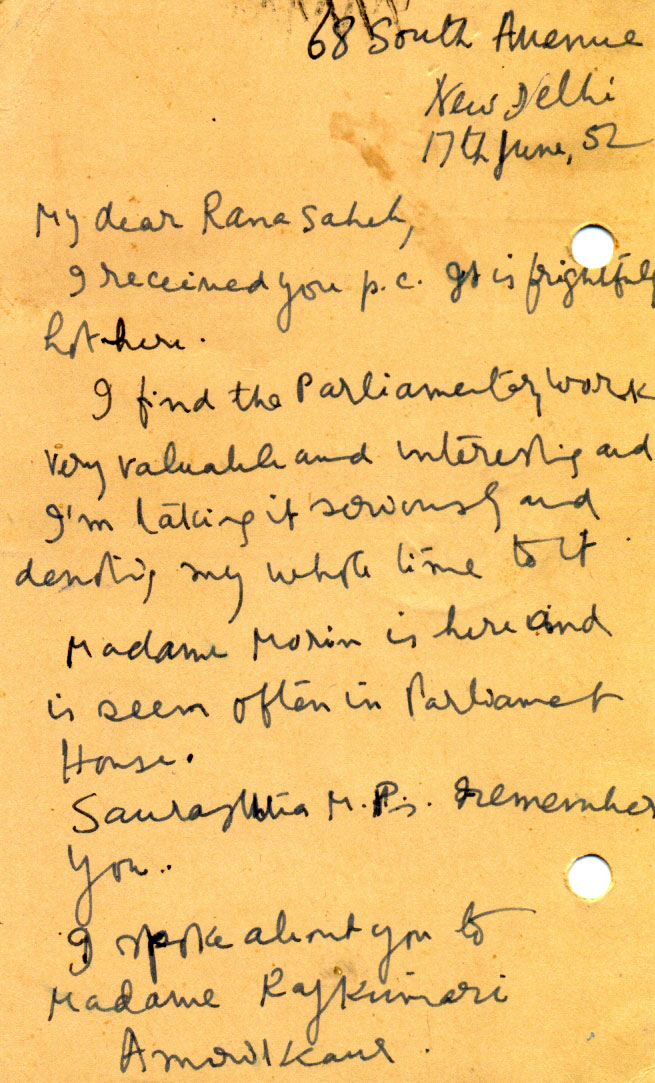 68 South Avenue
New Delhi
17th June, 52
My dear Rana Saheb,
I received you p.c. It is frightfully
hot here.
I find the Parliamentary work
very valuable and interesting and
I'm taking it seriously and
devoting my whole time to it
Madame Morin is here and
is seem often in Parliament
House.
Saurashtra M.P.s. remember
you..
I spoke about you to
Madame Rajkumari
Amrit Kaur.